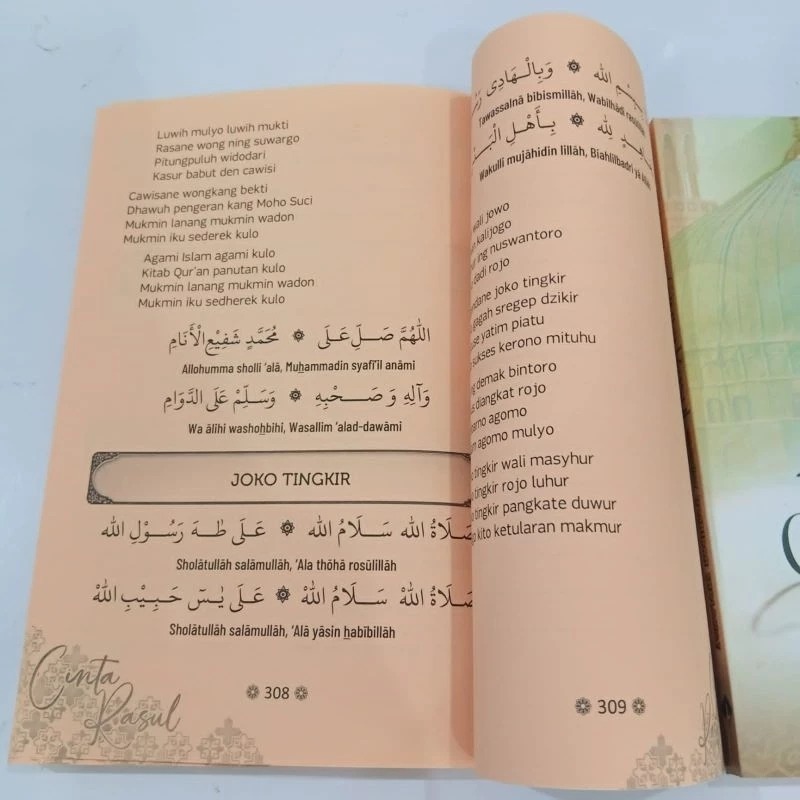 Luwih mulyo luwih mukti
Rasane wong ning suwargo
Pitungpuluh widodari
Kasur babut den cawisi
Cawisane wongkang bekti
Dhawuh pengeran kang Moho Suci
Mukmin lanang mukmin wadon
Mukmin iku sederek kulo
Agami Islam agami kulo
Kitab Qur'an panutan kulo
Mukmin lanang mukmin wadon
Mukmin iku sedherek kulo
اللّٰهُمَّ صَلِّ عَلَى ۞ مُحَمَّدٍ شَفِيْعِ الْأَنَامِ
Allohumma sholli 'alā, Muḥammadin syafi'il anāmi
وَآلِهِ وَ صَحْبِهِ ۞ وَسَلِّمْ عَلَى الدَّوَامِ
Wa ālihi washoḥbihi, Wasallim 'alad-dawāmi
JOKO TINGKIR
صَلَاةُ الله سَلَامُ الله ۞ عَلَى طٰهَ رَسُوْلِ الله
Sholātullāh salāmullāh, 'Ala thōhā rosūlillāh
صَلَاةُ اللهْ سَلَامُ اللهْ ۞ عَلَى يٰسٓ حَبِيْبِ اللهْ
Sholātullāh salāmullāh, 'Alā yāsin ḥabībillāh
Cinta
Rasul
308
الله ۞ وَبِالْهَادِى
Tawassalnā bibismillāh, Wabilhādi
لِلّٰهِ ۞ بِأَهْلِ
Wakulli mujāhidin lillāh, Biahlilbadri yā
wali jowo
kalijogo
ing nuswantoro
dadi rojo
joko tingkir
gagah sregep dzikir
yatim piatu
sukses kerono mituhu
demak bintoro
diangkat rojo
agomo
agomo mulyo
tingkir wali masyhur
tingkir rojo luhur
tingkir pangkate duwur
kito ketularan makmur
309